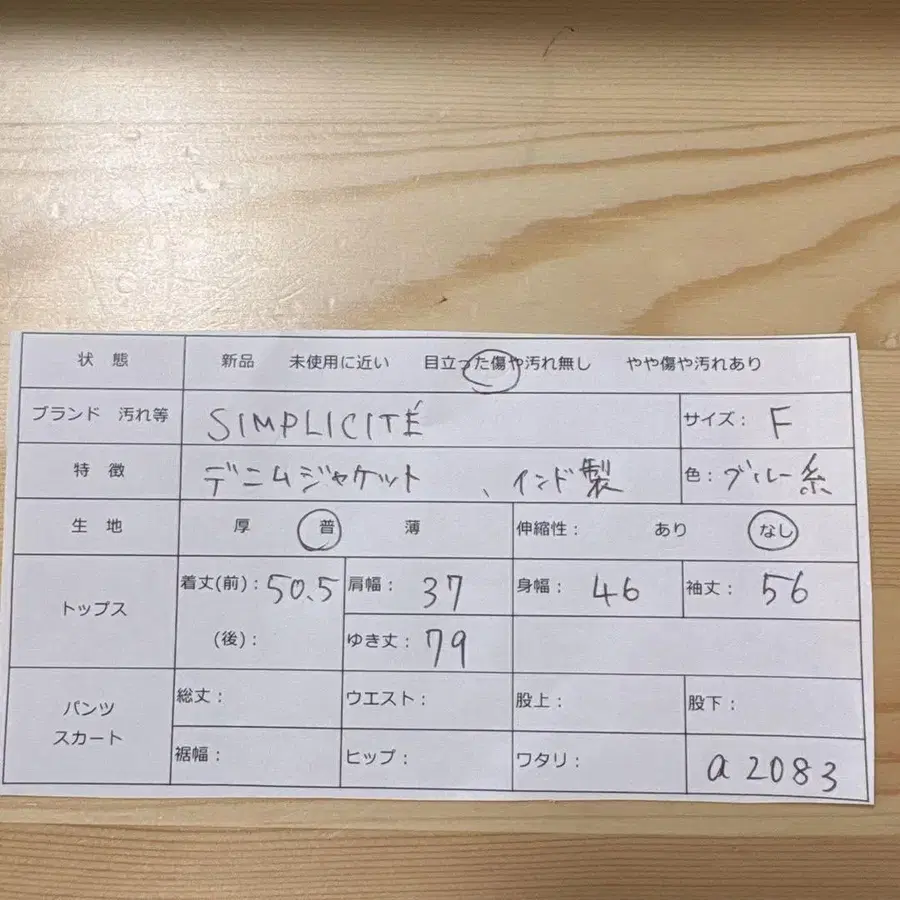 状 態 新品 未使用に近い 目立った傷や汚れ無し やや傷や汚れあり
ブランド 汚れ等 SIMPLICITÉ サイズ： F
特 徴 デニムジャケット 、インド製 色： ブルー系
生 地 厚 普 薄 伸縮性： あり なし
トップス 着丈(前)： 50.5 肩幅： 37 身幅： 46 袖丈： 56
(後)： ゆき丈： 79
パンツ スカート 総丈： ウエスト： 股上： 股下：
裾幅： ヒップ： ワタリ： a 2083